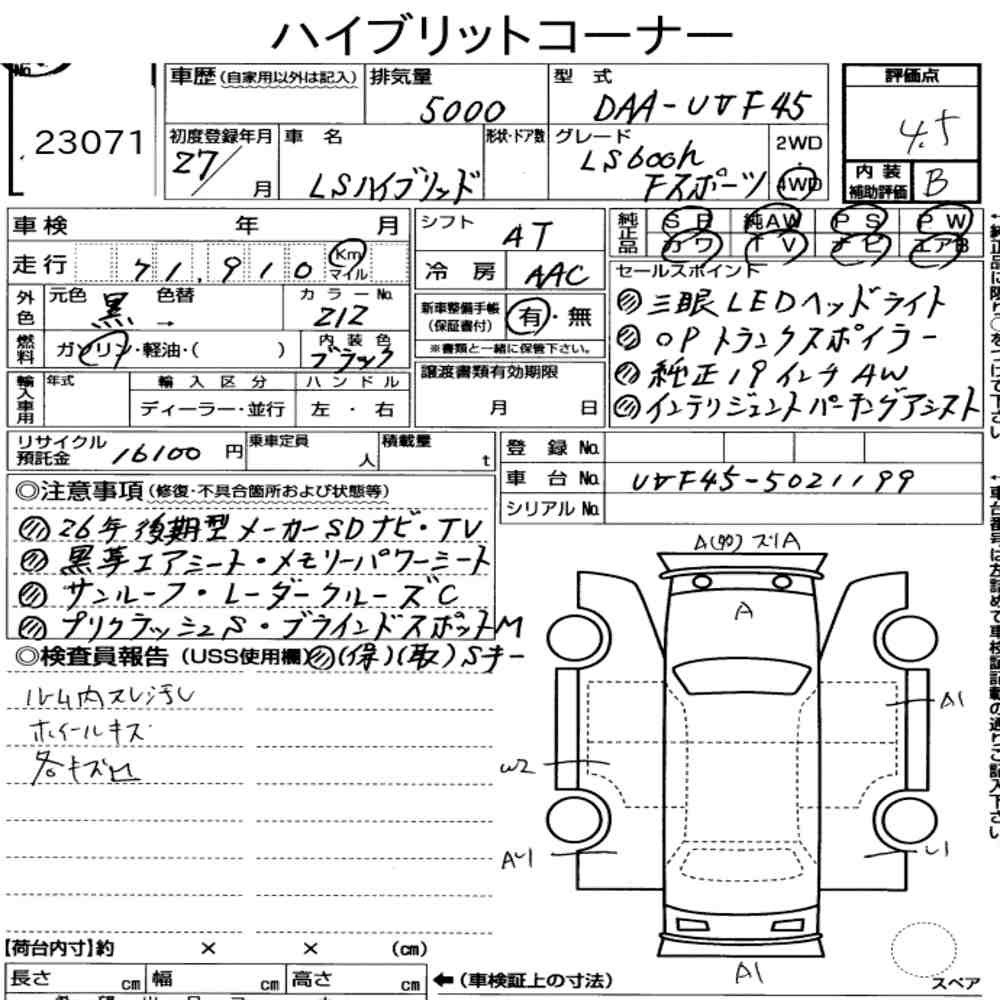 ハイブリットコーナー
No.
23071
車歴 (自家用以外は記入)
排気量
5000
型 式
DAA-UVF45
評価点
4.5
初度登録年月
27/
月
車 名
LSハイブリッド
形状・ドア数
グレード
LS600h
Fスポーツ
2WD
・
4WD
内 装
補助評価
B
車 検 年 月
走 行 71,910 Km
マイル
シフト
AT
冷 房 AAC
純正品
SR 純AW PS PW
カワ TV ナビ エアB
外色
元色 黒 色替 →
カラーNo.
212
新車整備手帳
(保証書付)
有・無
※書類と一緒に保管下さい。
燃料
ガソリン・軽油・( )
内装色
ブラック
セールスポイント
三眼LEDヘッドライト
OPトランクスポイラー
純正19インチAW
インテリジェントパーキングアシスト
輸入車用
年式
輸入区分
ハンドル
ディーラー・並行
左・右
譲渡書類有効期限
月 日
リサイクル
預託金
16100円
乗車定員
人
積載量
t
登 録 No.
車 台 No. UVF45-5021199
シリアルNo.
◎注意事項 (修復・不具合箇所および状態等)
26年後期型メーカーSDナビ・TV
黒革エアシート・メモリーパワーシート
サンルーフ・レーダークルーズC
プリクラッシュS・ブラインドスポットM
◎検査員報告 (USS使用欄) (保)(取)Sキー
ルーム内スレ汚レ
ホイールキズ
各キズ凹
A(タワ) スリA
A
A1
W2
AU1
U1
A1
スペア
【荷台内寸】約 × × (cm)
長さ cm 幅 cm 高さ cm
←(車検証上の寸法)